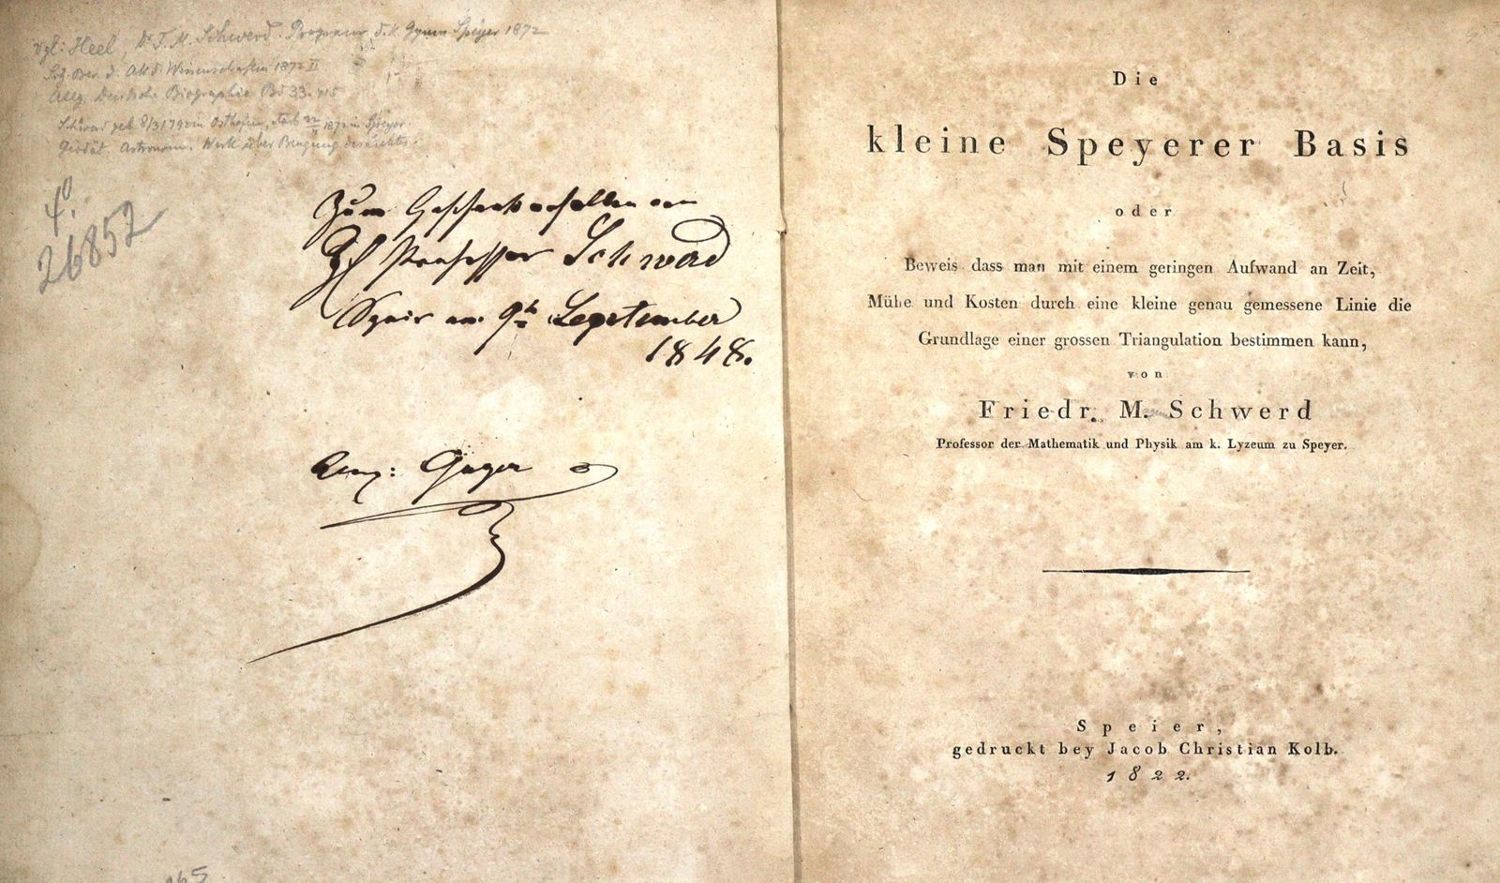 Vgl: Heel, Dr F. M. Schwerd. Programm d. K. Gymn Speyer 1872
Sitz. Ber. d. Akd. Wissenschaften 1872 II
Allg. Deutsche Biographie Bd 33.
Schwerd geb 8/3 1792 in Osthofen, starb 22/4 1871 in Speyer.
Geodät. Astronom. Werk über Beugung des Lichtes.
4°.
26852
Zum Geschenk erhalten von
Professor Schwerd
Speier am 9t September
1848.
Aug:
Die
kleine Speyerer Basis
oder
Beweis dass man mit einem geringen Aufwand an Zeit,
Mühe und Kosten durch eine kleine genau gemessene Linie die
Grundlage einer grossen Triangulation bestimmen kann,
von
Friedr. M. Schwerd
Professor der Mathematik und Physik am k. Lyzeum zu Speyer.
Speier,
gedruckt bey Jacob Christian Kolb.
1822.